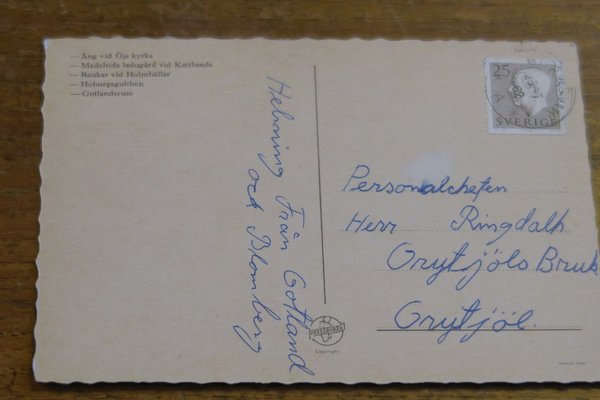 — Äng vid Öja kyrka
— Medeltida ladugård vid Kattlunds
— Raukar vid Holmhällar
— Hoburgsgubben
— Gotlandsruss
25
SVERIGE
Helsning Från Gotland
och Blomberg
Personalchefen
Herr Ringdalh
Grytjöls Bruk
Grytjöl.
PRESSBYRÅN
Copyright